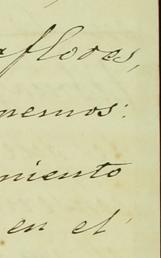 aflores,
nemos:
miento
en el